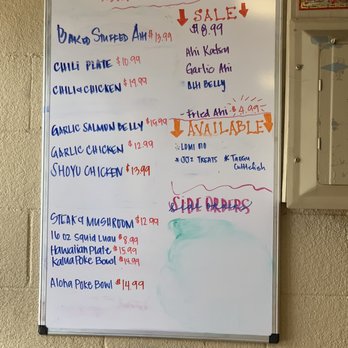 Baked Stuffed Ahi $13.99
Chili Plate $10.99
Chili & Chicken $14.99
Garlic Salmon Belly $14.99
Garlic Chicken $12.99
Shoyu Chicken $13.99
Steak & Mushroom $12.99
16 oz Squid Luau $8.99
Hawaiian Plate $15.99
Kalua Poke Bowl $14.99
Aloha Poke Bowl $14.99
SALE
$8.99
Ahi Katsu
Garlic Ahi
Ahi Belly
- Fried Ahi $4.99
AVAILABLE
Lomi
JJ'z Treats * Taegu
Cuttlefish
Side Orders